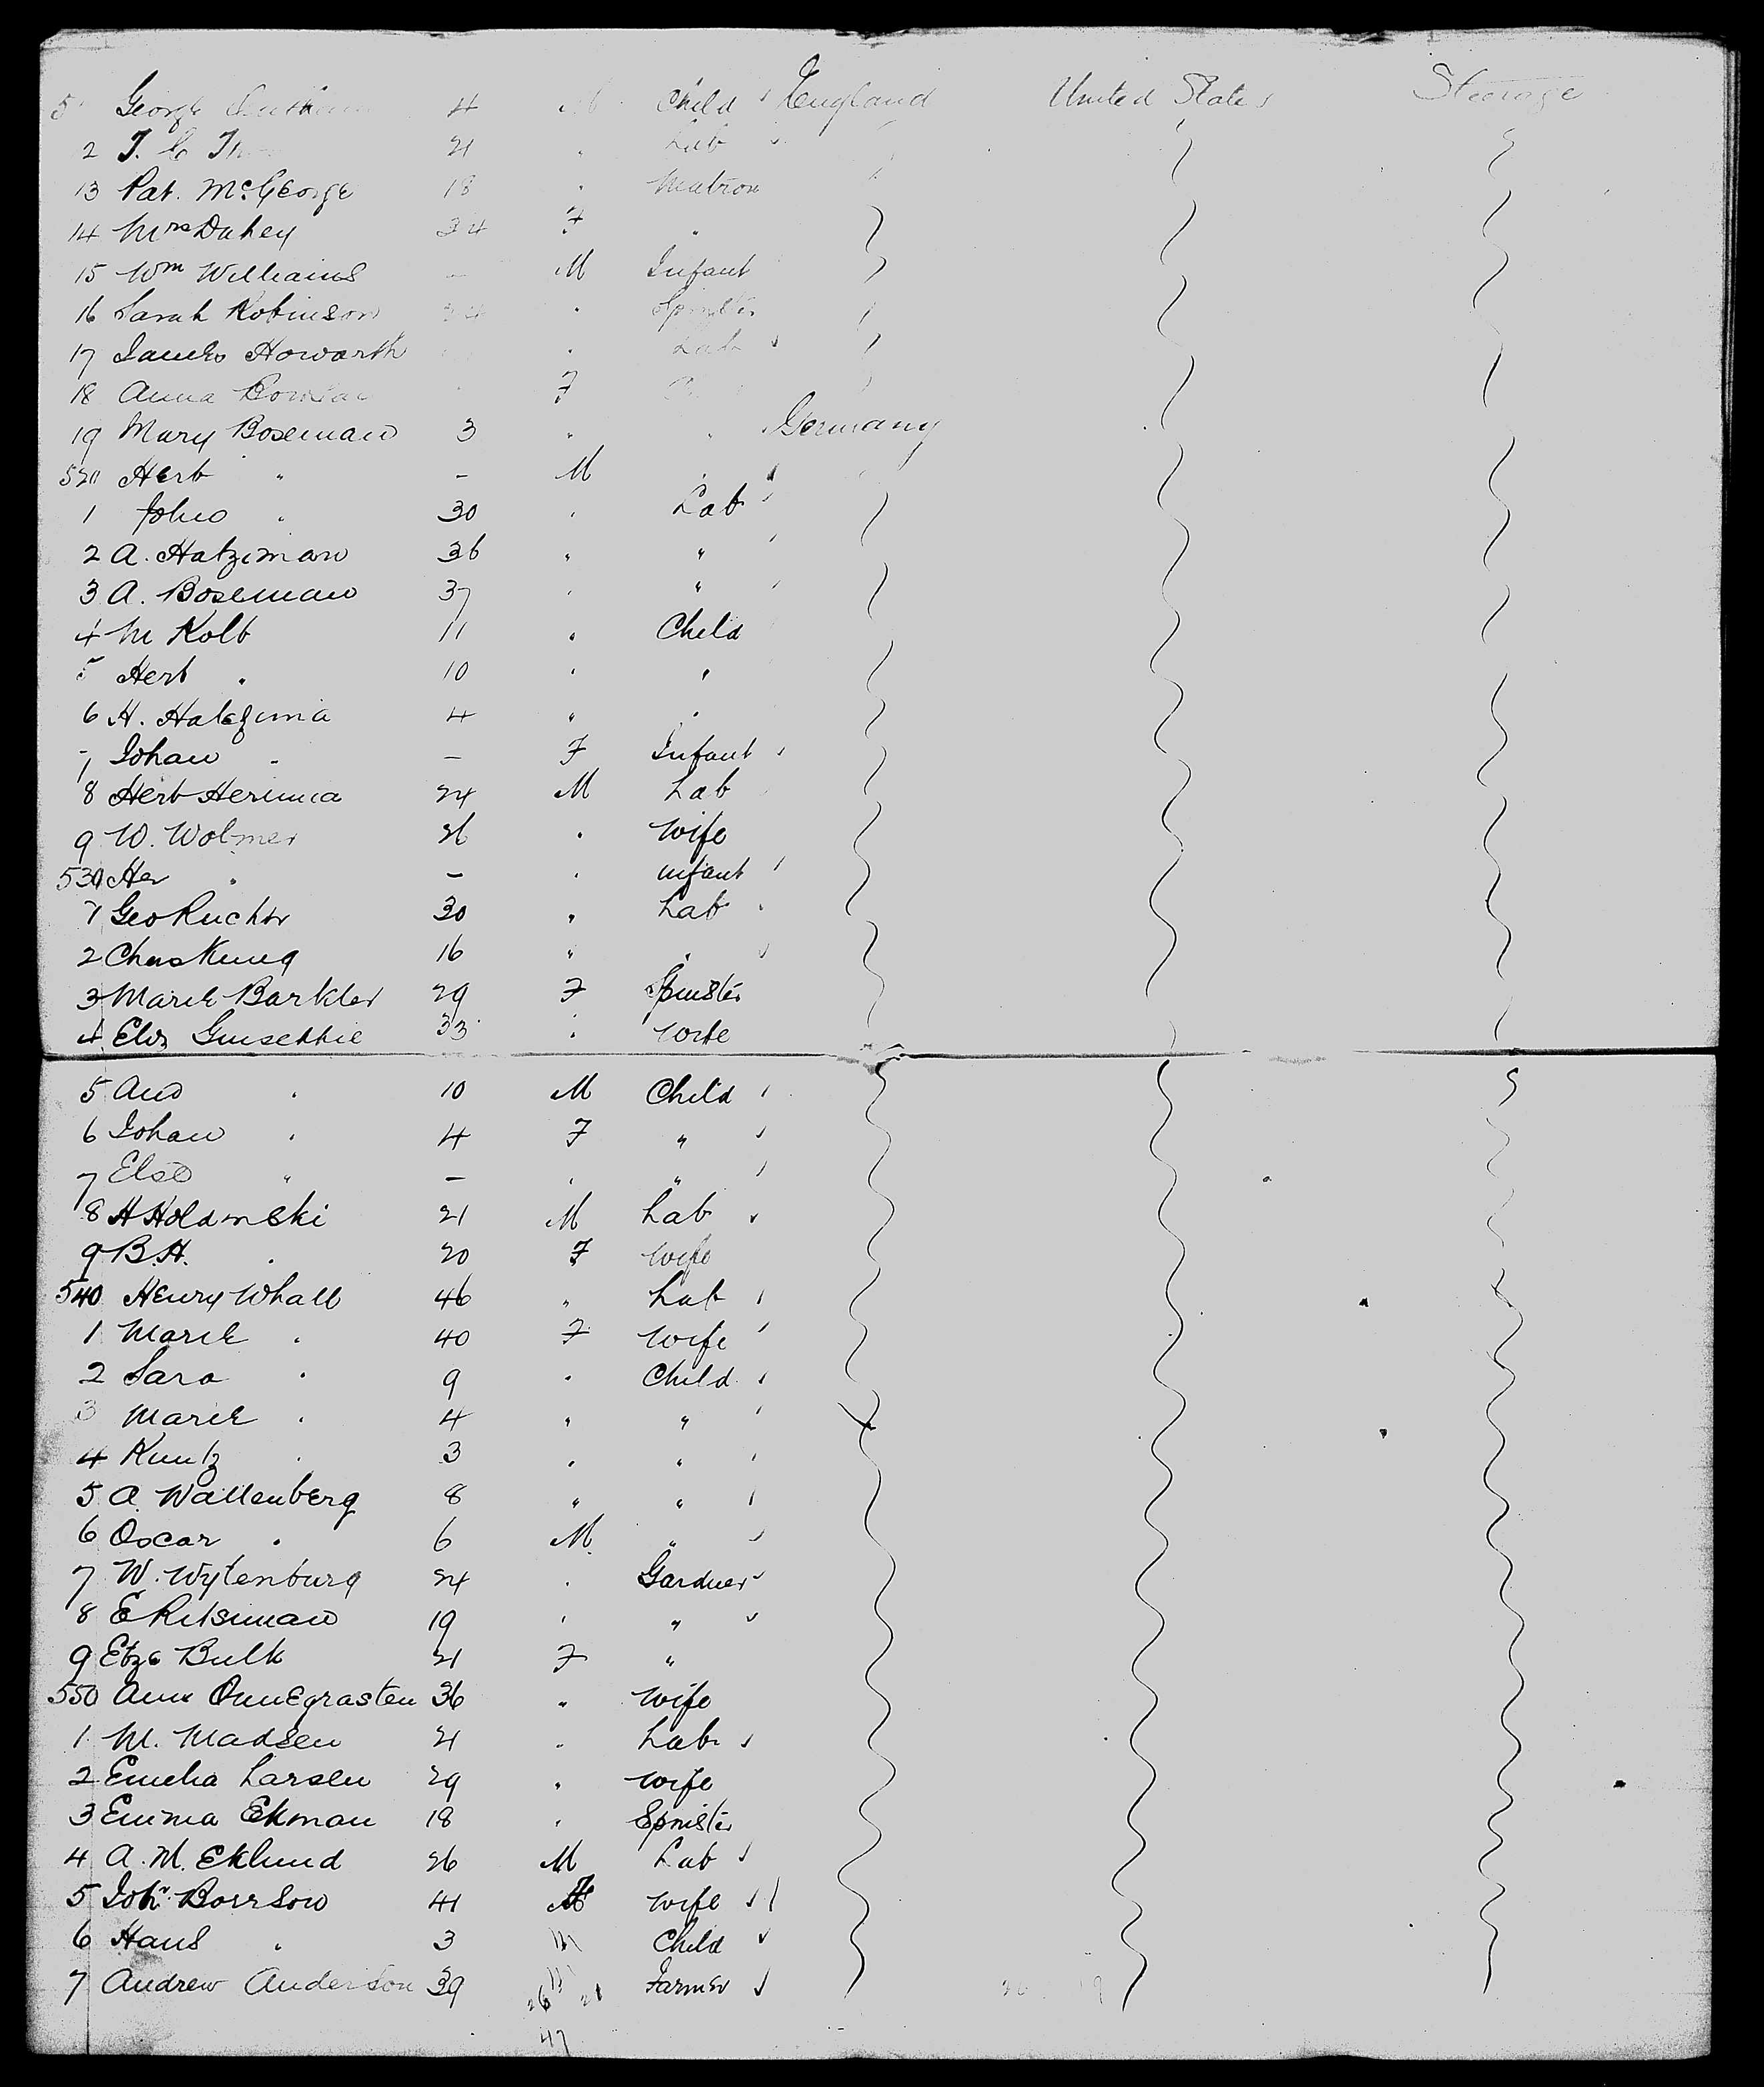 5 George 4 M Child England United States Steerage
2 J. C 21 " Lab
13 Pat. McGeorge 18 " Matron
14 Mrs Dahey 34 F "
15 Wm Williams — M Infant
16 Sarah Robinson " Spinster
17 James Howarth " Lab
18 Anna F
19 Mary Boseman 3 " " Germany
520 Herb " — M "
1 John " 30 " Lab
2 A. Hatziman 36 " "
3 A. Boseman 37 " "
4 M Kolb 11 " Child
5 Herb " 10 " "
6 H. 4 " "
7 Johan " — F Infant
8 Herb 24 M Lab
9 W. Wolmer 26 " Wife
530 Her " — " infant
1 Geo Ruchtr 30 " Lab
2 Chas 16 " "
3 Marie Barkler 29 F Spinster
4 Eliz 33 " Wife
5 And " 10 M Child
6 Johan " 4 F "
7 Else " — " "
8 H Holdmski 21 M Lab
9 B.H. " 20 F Wife
540 Henry Whall 46 " Lab
1 Marie " 40 F Wife
2 Sara " 9 " Child
3 Marie " 4 " "
4 Kuntz " 3 " "
5 A. Wallenberg 8 " "
6 Oscar " 6 M "
7 W. Wytenburg 24 " Gardner
8 E Ritsiman 19 " "
9 Etze Bulk 21 F "
550 36 " Wife
1 M. Madsen 21 " Lab
2 Emelia Larsen 29 " Wife
3 Emma Ekman 18 " Spinster
4 A. M. Eklund 26 M Lab
5 John Borrson 41 Wife
6 Hans " 3 Child
7 Andrew Anderson 39 Farmer
26 21
47